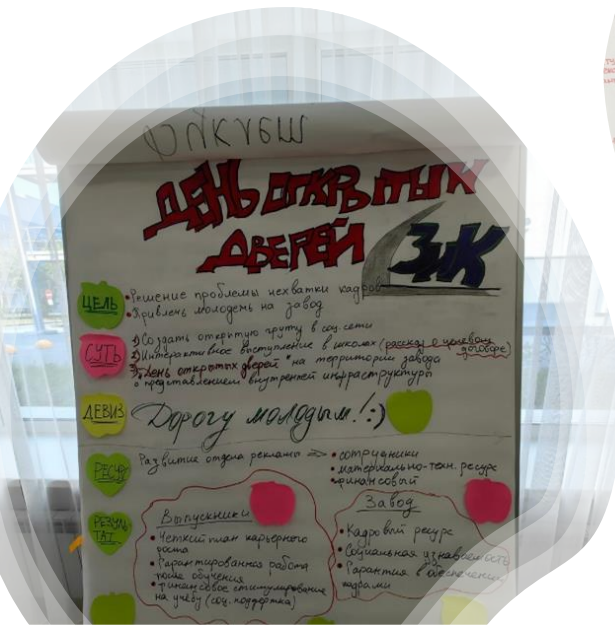 ДЕНЬ ОТКРЫТЫХ
ДВЕРЕЙ ЗИК
ЦЕЛЬ
• Решение проблемы нехватки кадров
• Привлечь молодежь на завод
СУТЬ
1) Создать открытую группу в соц. сети
2) Интерактивное выступление в школах (рассказ о целевом
договоре)
3) „День открытых дверей" на территории завода
с представлением внутренней инфраструктуры
ДЕВИЗ
Дорогу молодым! :)
РЕСУРС
Развитие отдела рекламы ⇒ • сотрудники
• материально-техн. ресурс
• финансовый
РЕЗУЛЬ
ТАТ
Выпускники
• Четкий план карьерного
роста
• Гарантированная работа
после обучения
• Финансовое стимулирование
на учебу (соц. поддержка)
Завод
• Кадровый ресурс
• Социальная узнаваемость
• Гарантия в обеспечении
кадрами